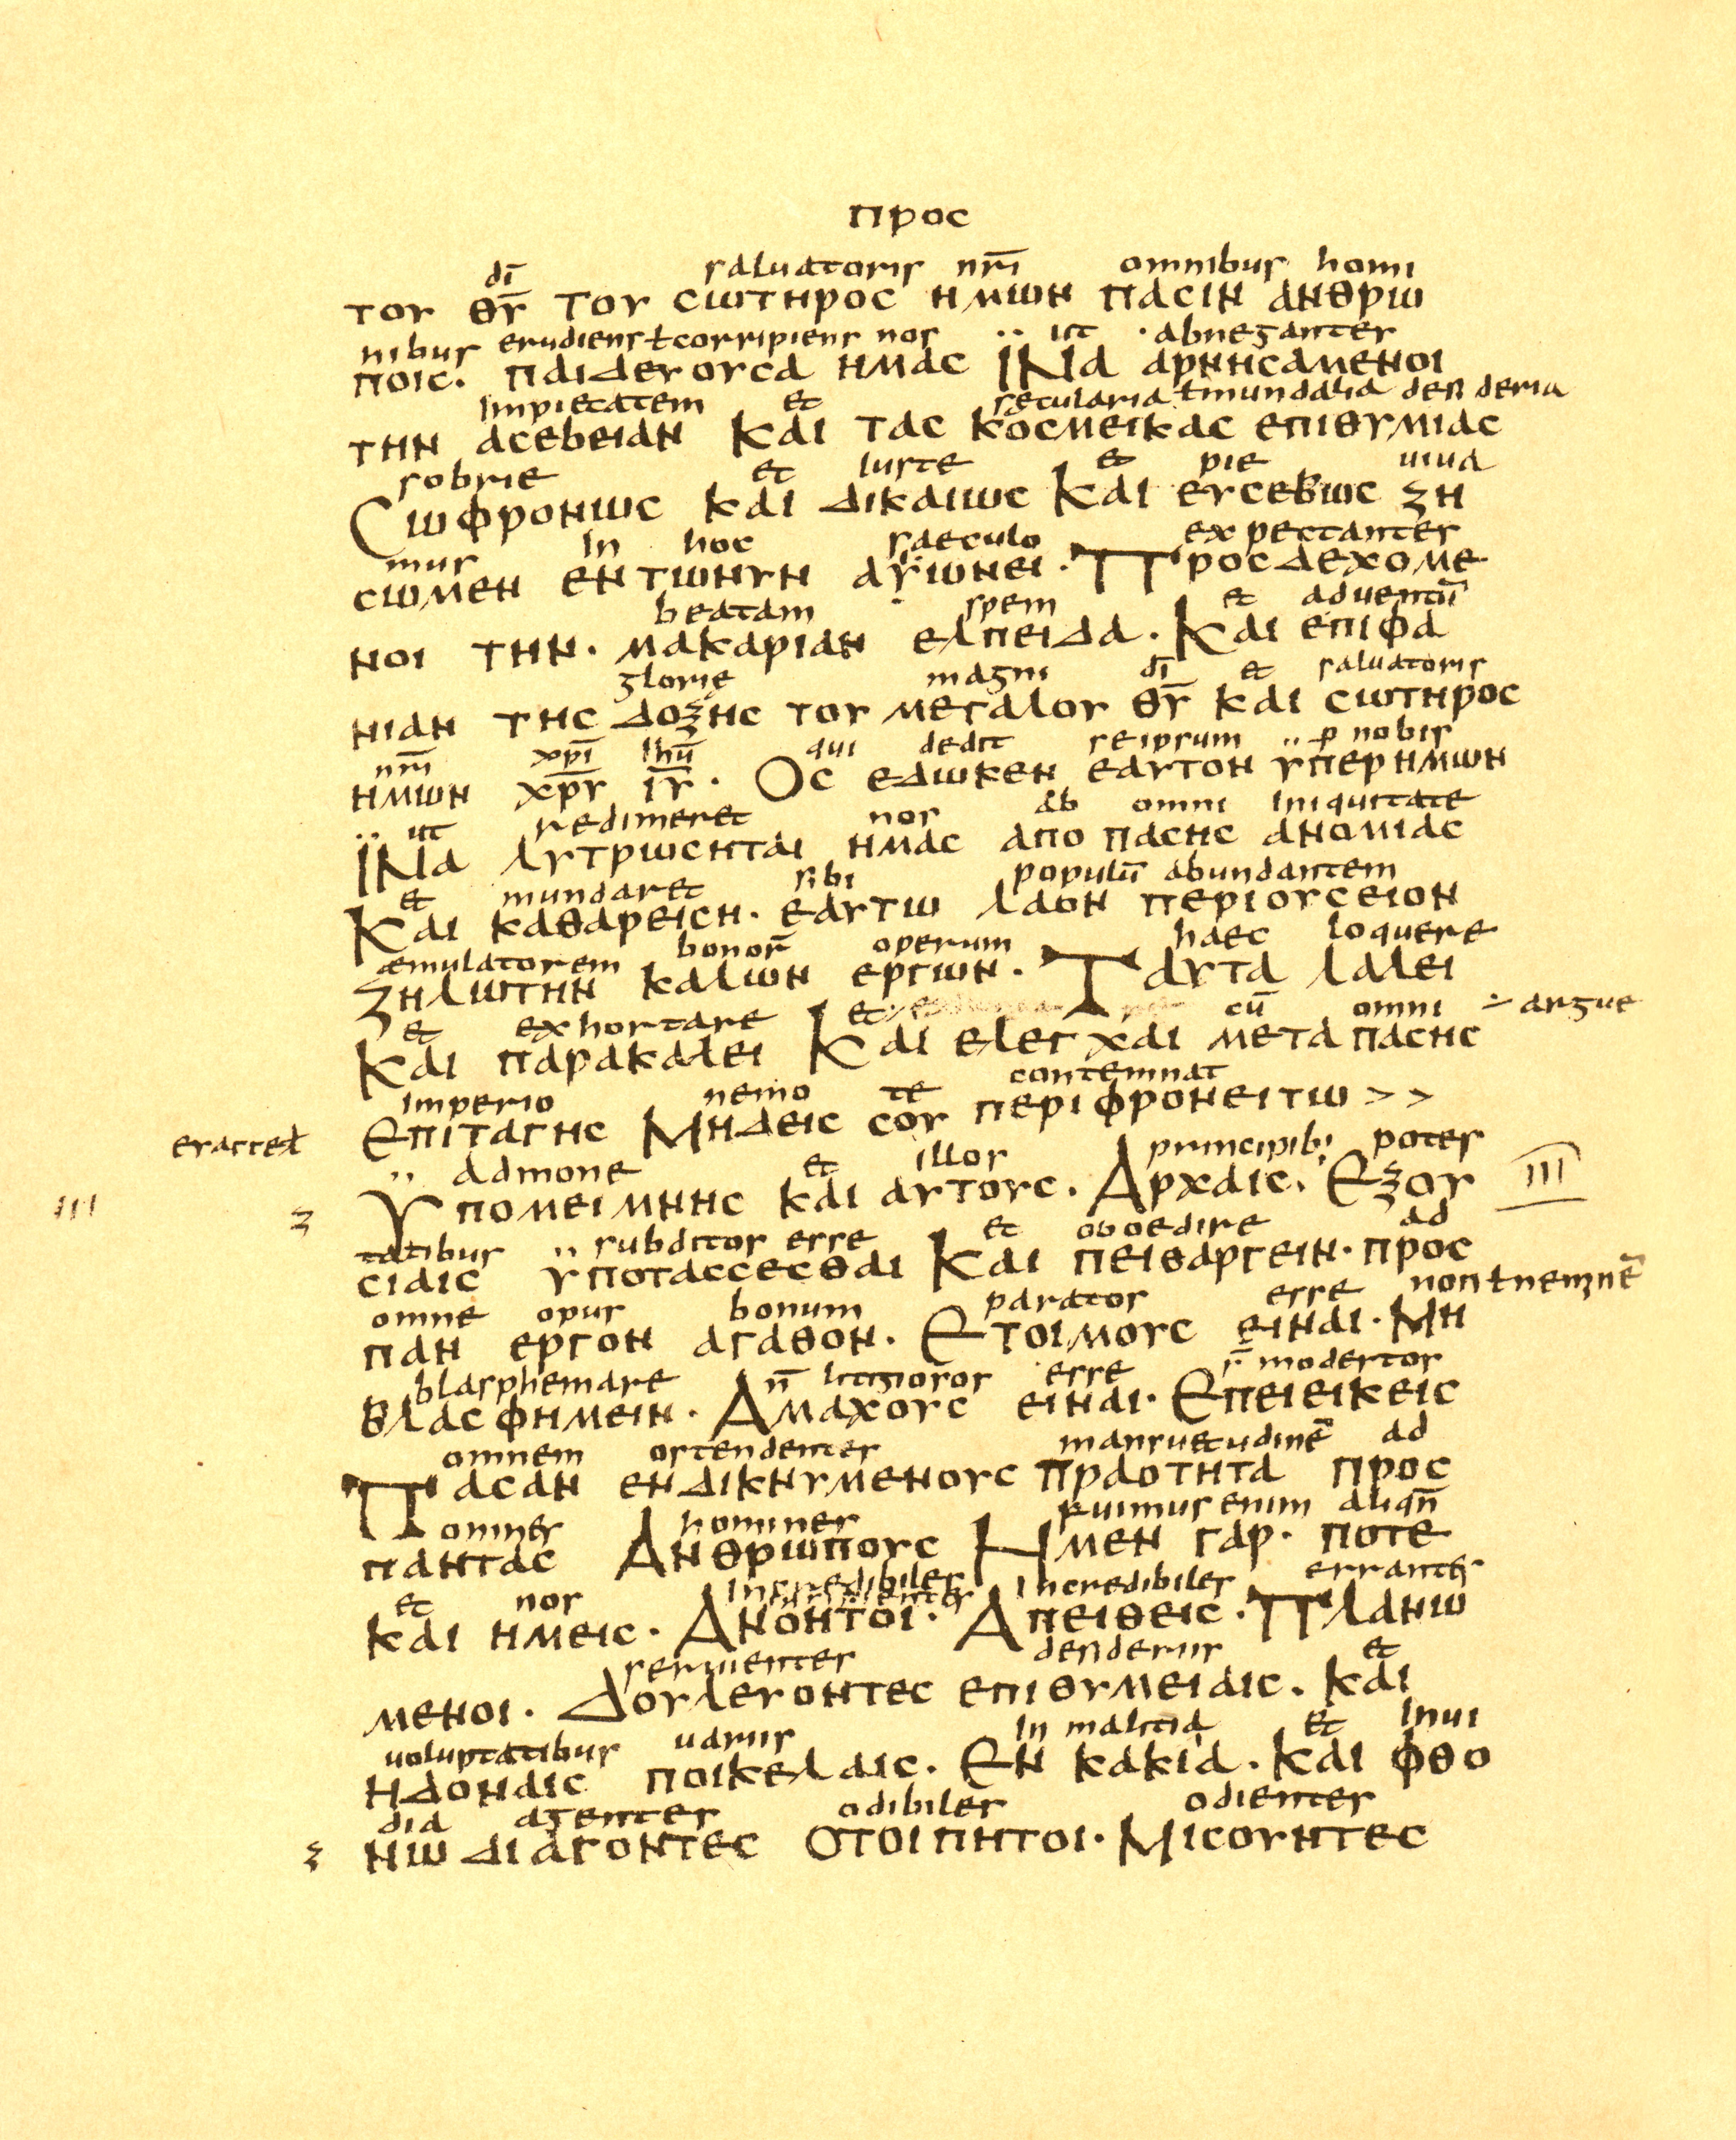 προс
di saluatoris nri omnibus homi
του θυ του сωτηροс ημων παсιν ανθρω
nibus erudiens ł corripiens nos ·· ut · abnegantes
ποιс. παιδευουсα ημαс ινα αρνηсαμενοι
impietatem et secularia ł mundalia desideria
την αсεβειαν και ταс κοсμεικαс επιθυμιαс
sobrie et iuste et pie uiua
Сωφρονωс και δικαιωс Και ευсεβωс ζη
mus in hoc saeculo expectantes
сωμεν εν τωνυν αυωνει · Προсδεχομε
beatam spem et aduentū
νοι την · μακαριαν ελπειδα · Και επιφα
glorię magni di et saluatoris
νιαν τηс δοξηс του μεγαλου θυ και сωτηροс
nri xpi ihu qui dedit seipsum ·· p nobis
ημων χρυ ιυ · Οс εδωκεν εαυτον υπερ ημων
·· ut redimeret nos ab omni iniquitate
ινα λυτρωсηται ημαс απο παсηс ανομιαс
et mundaret sibi populū abundantem
Και καθαρειсη · εαυτω λαον περιουсειον
æmulatorem bonor operum haec loquere
Ζηλωτην καλων εργων · Ταυτα λαλει
et exhortare et cū omni ÷ argue
Και παρακαλει Και ελεγχαι μετα παсηс
imperio nemo te contemnat
Επιταγηс Μηδειс сου περιφρονειτω > >
·· admone et illos principib; potes
Υπομειμνηс και αυτουс. Αρχαιс. Εξου
III
III
tatibus ·· subditos esse et oboedire ad
сιαιс υποταссεсθαι Και πειθαργειν · προс
omne opus bonum paratos esse non ł neminē
παν εργον αγαθον. Ετοιμουс ειναι · Μη
blasphemare n̄ litigiosos esse s̄ modestos
βλαсφημειν. Αμαχουс ειναι · Επειεικειс
omnem ostendentes mansuetudinē ad
Παсαν ενδικνυμενουс πραοτητα προс
omnes homines fuimus enim aliqn̄
πανταс Ανθρωπουс Ημεν γαρ · ποτε
et nos incredibiles errantes
και ημειс. Ανοητοι. Απειθειс. Πλανω
seruientes desideriis et
μενοι. Δουλευοντεс επιθυμειαιс. και
uoluptatibus uariis in malitia et inui
ηδοναιс ποικελαιс. Εν κακια. και φθο
dia agentes odibiles odientes
νω διαγοντεс Οτοιπητοι. Μιсουντεс